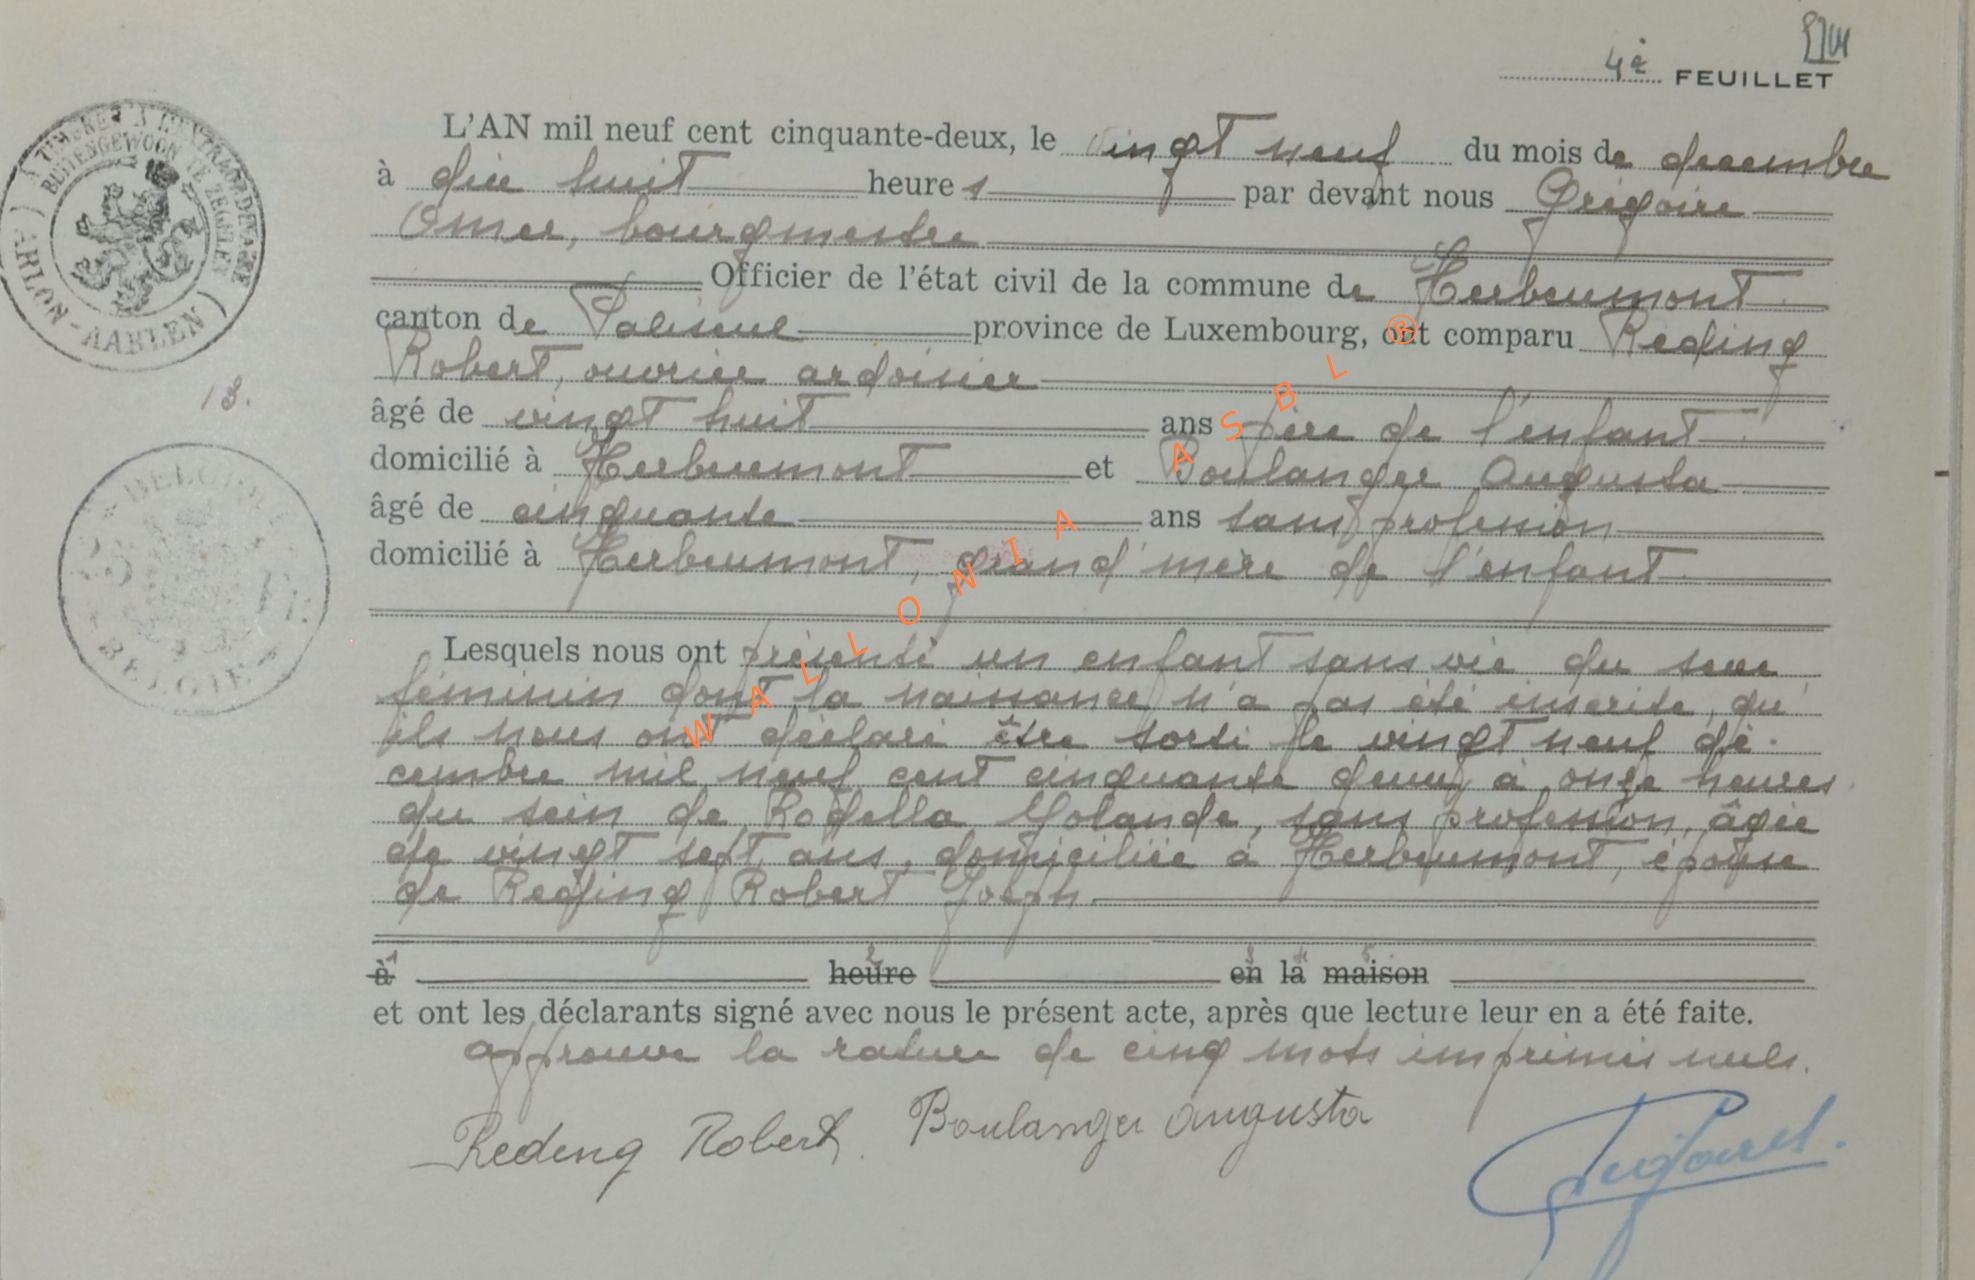 4e FEUILLET
L'AN mil neuf cent cinquante-deux, le vingt neuf du mois de decembre
à dix huit heures par devant nous Grégoire
Omer, bourgmestre
Officier de l'état civil de la commune de Herbeumont
canton de Paliseul province de Luxembourg, ont comparu Reding
Robert, ouvrier ardoisier
âgé de vingt huit ans père de l'enfant
domicilié à Herbeumont et Boulanger Augusta
âgé de cinquante ans sans profession
domicilié à Herbeumont, grand'mère de l'enfant
Lesquels nous ont présenté un enfant sans vie du sexe
féminin dont la naissance n'a pas été inscrite, qu'
ils nous ont déclaré être sorti le vingt neuf dé-
cembre mil neuf cent cinquante deux à onze heures
du sein de Rodella Yolande, sans profession, âgée
de vingt sept ans, domiciliée à Herbeumont, épouse
de Reding Robert Joseph.
à 1 heure 2 en 3 la 4 maison 5
et ont les déclarants signé avec nous le présent acte, après que lecture leur en a été faite.
approuvé la rature de cinq mots imprimés nuls.
Reding Robert. Boulanger Augusta
13.
A TIMBRER A L'EXTRAORDINAIRE
BUITENGEWOON TE ZEGELEN
ARLON - AARLEN
BELGIQUE
BELGIE
WALLONIA ASBL ®